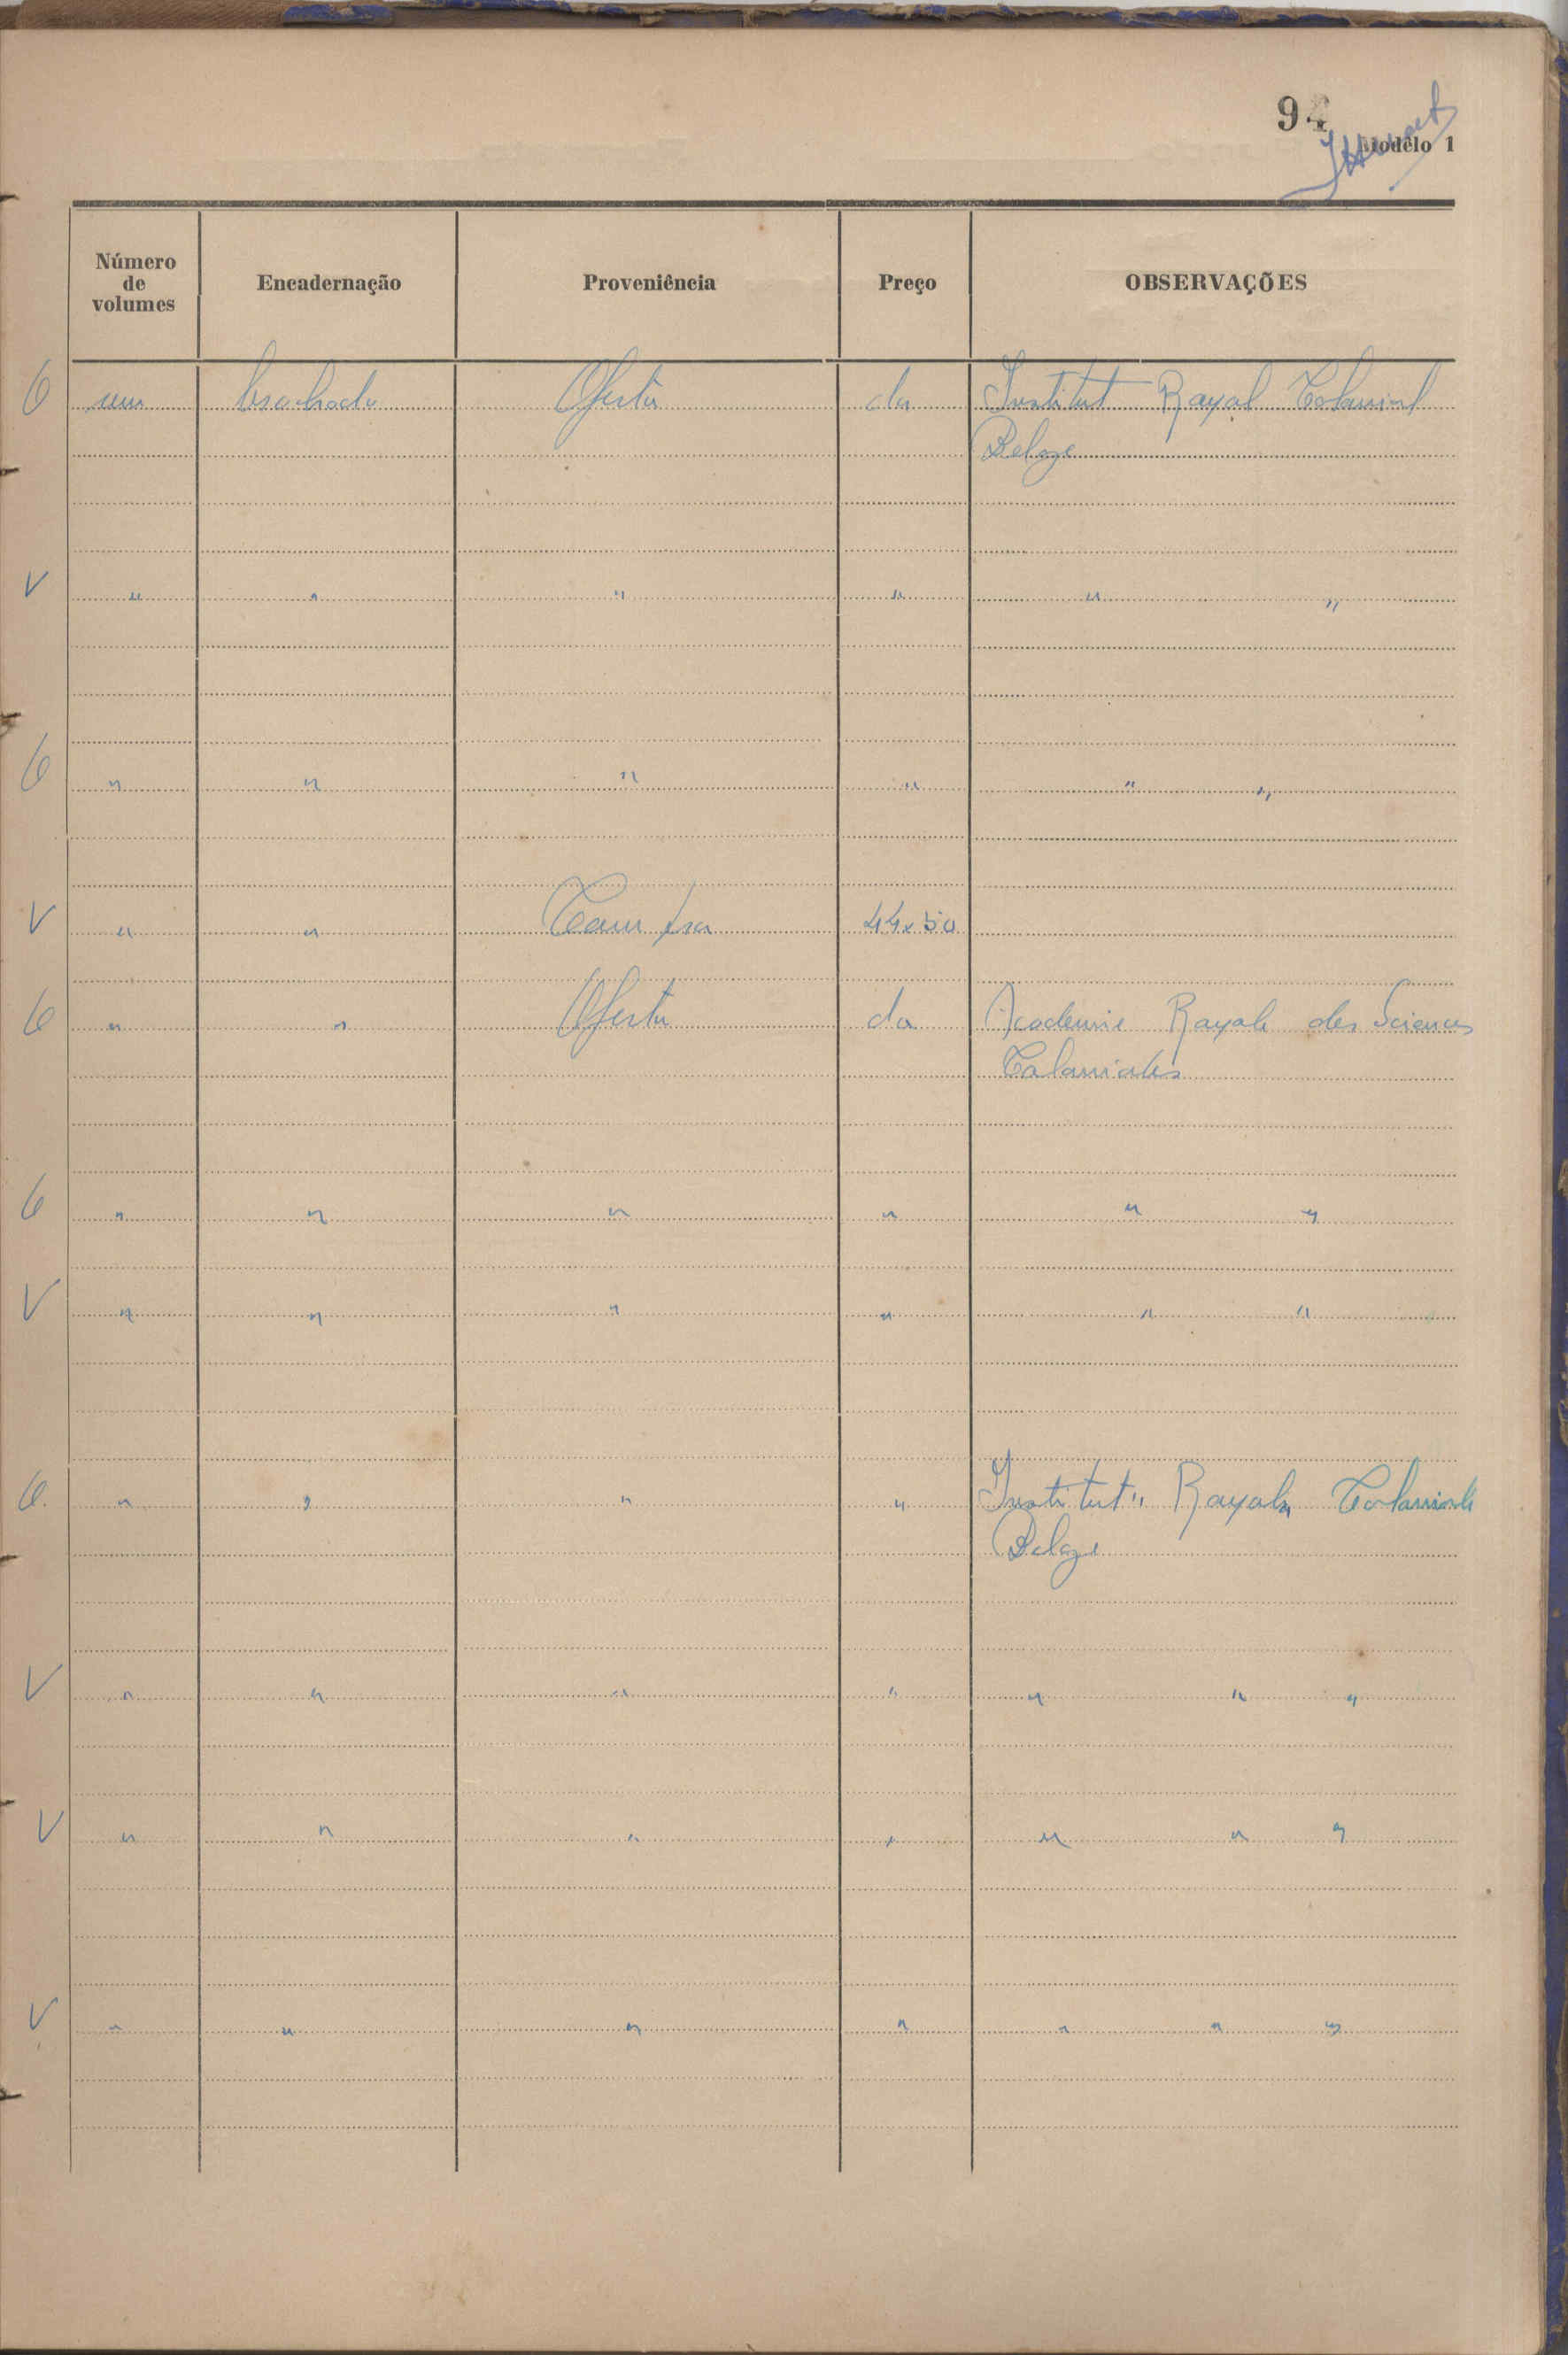 94
Modêlo 1
Número de volumes Encadernação Proveniência Preço OBSERVAÇÕES
6 um brochado Oferta da Institut Royal Colonial
Belge
V " " " " " "
6 " " " " " "
V " " Compra 44x50
6 " " Oferta da Academie Royale des Sciences
Coloniales
6 " " " " " "
V " " " " " "
6. " " " " Institut " Royale Coloniale
Belge
V " " " " " " "
V " " " " " " "
V " " " " " " "